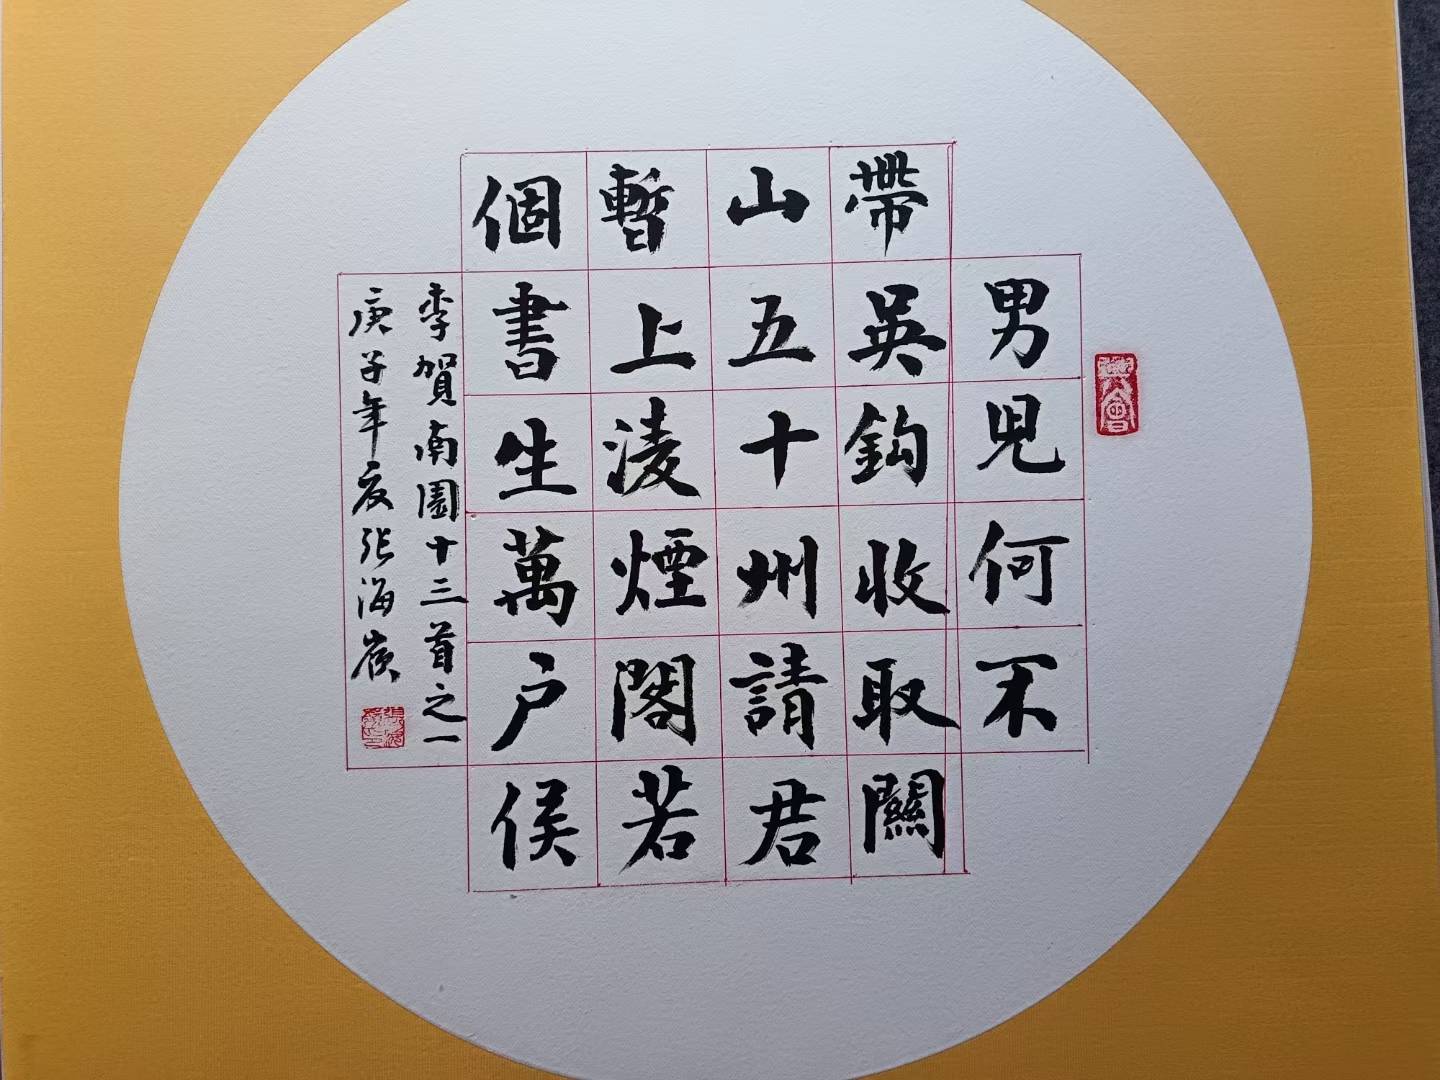 男兒何不
帶吳鈎收取關
山五十州請君
暫上淩煙閣若
個書生萬户侯
李賀南園十三首之一
庚子年夏张海